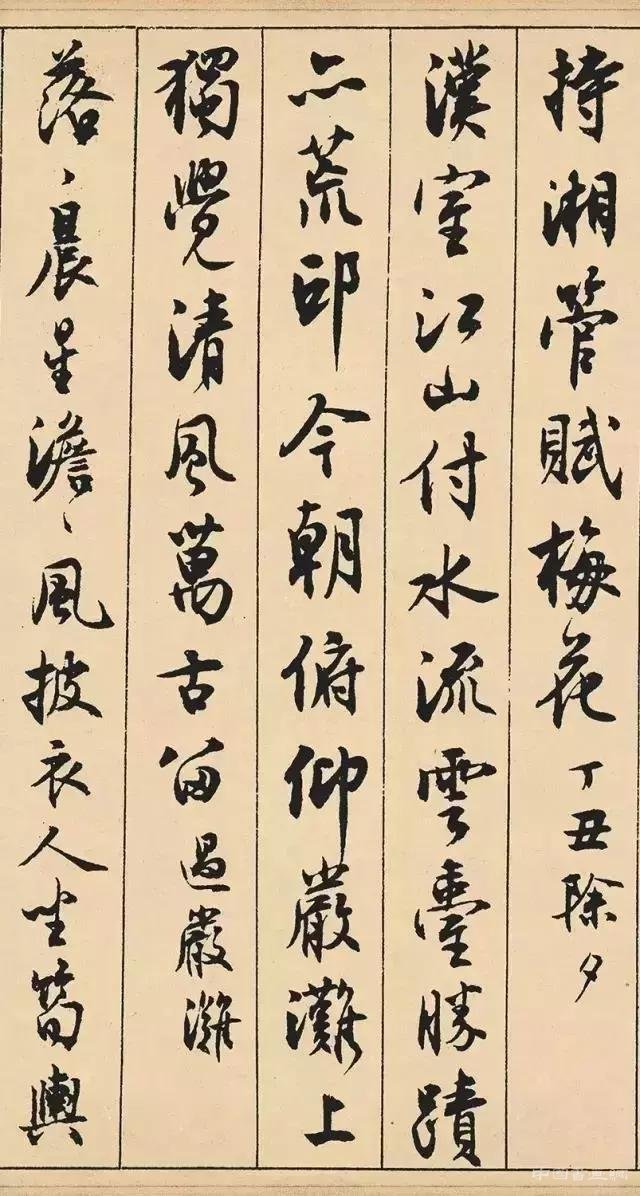 持湘管賦梅花 丁丑除夕
漢室江山付水流雲臺勝蹟
亦荒邱今朝俯仰嚴灘上
獨覺清風萬古留 過嚴灘
落〻晨星澹〻風披衣人坐筍輿
中国书画网